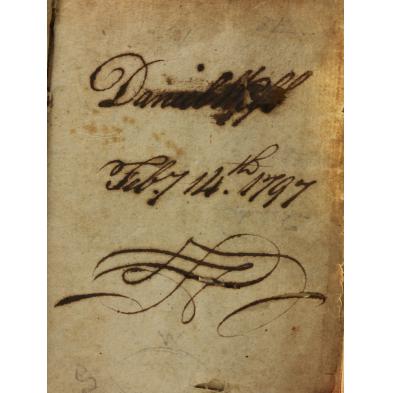 Daniel
Feby 14th. 1797